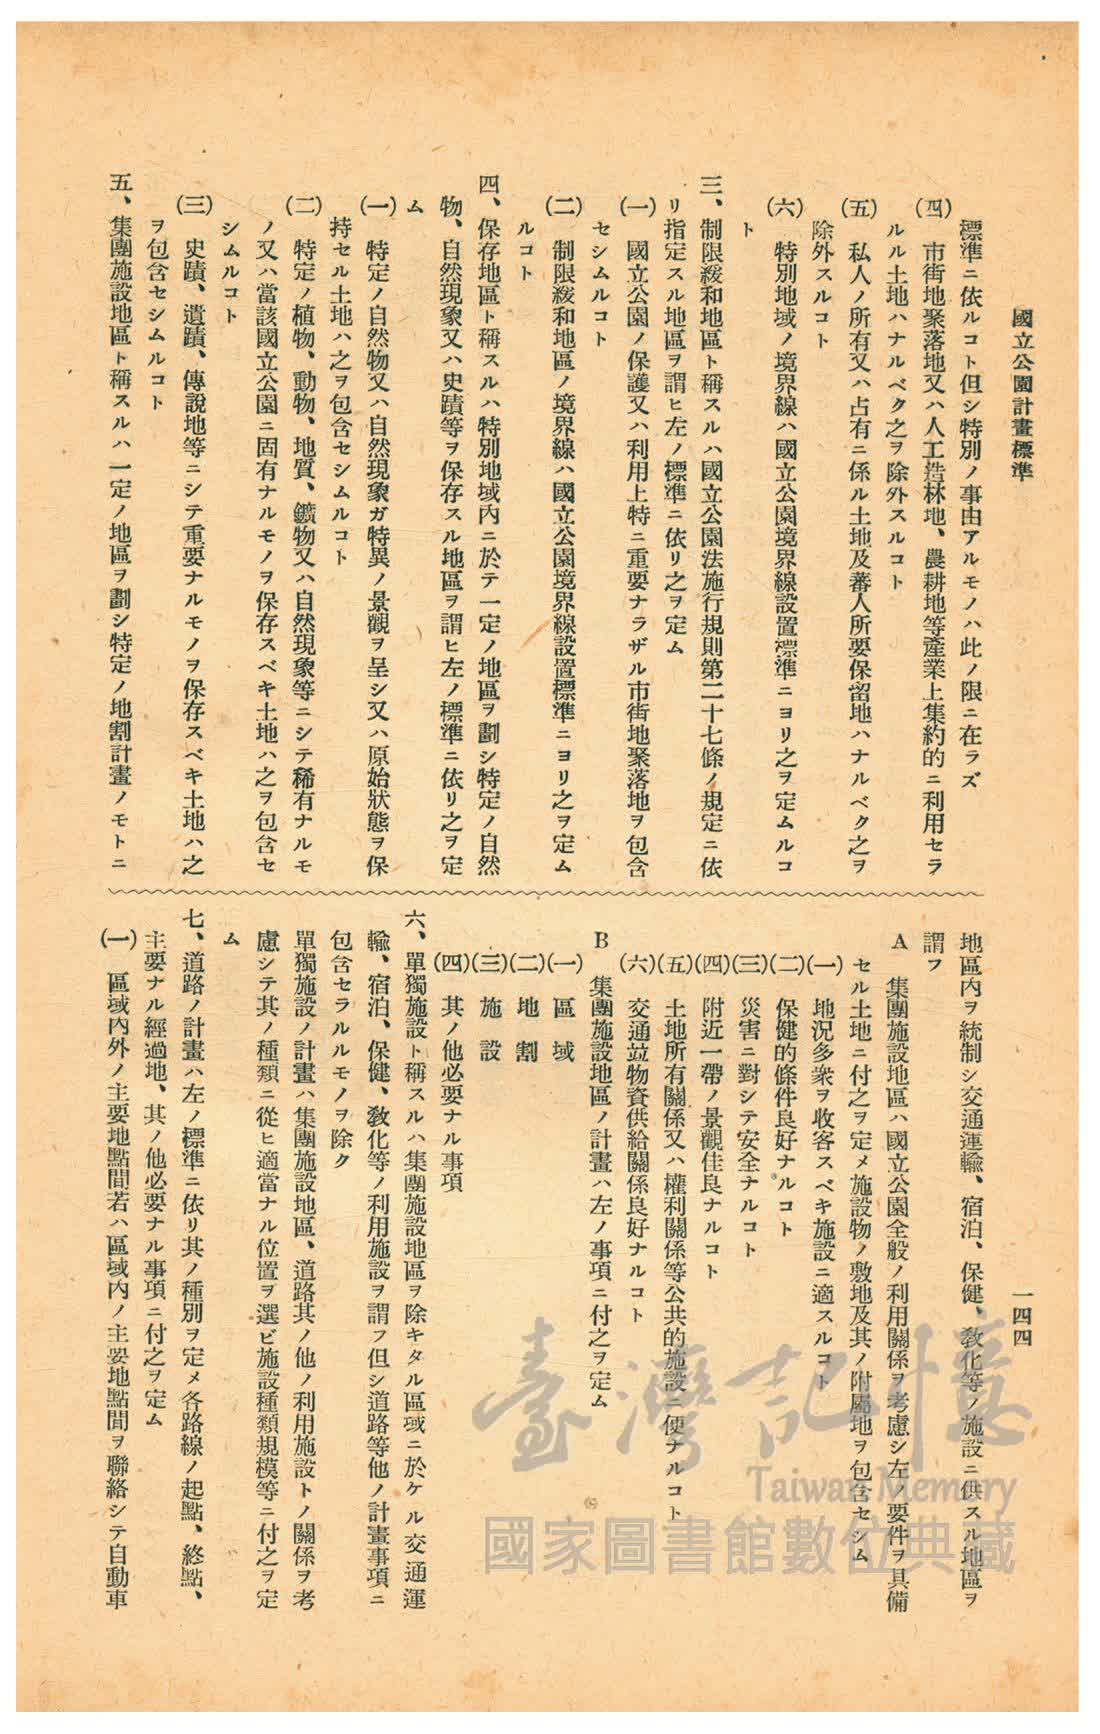 國立公園計畫標準
一四四
標準ニ依ルコト但シ特別ノ事由アルモノハ此ノ限ニ在ラズ
(四) 市街地聚落地又ハ人工造林地、農耕地等產業上集約的ニ利用セラ
ルル土地ハナルベク之ヲ除外スルコト
(五) 私人ノ所有又ハ占有ニ係ル土地及蕃人所要保留地ハナルベク之ヲ
除外スルコト
(六) 特別地域ノ境界線ハ國立公園境界線設置標準ニヨリ之ヲ定ムルコ
ト
三、制限緩和地區ト稱スルハ國立公園法施行規則第二十七條ノ規定ニ依
リ指定スル地區ヲ謂ヒ左ノ標準ニ依リ之ヲ定ム
(一) 國立公園ノ保護又ハ利用上特ニ重要ナラザル市街地聚落地ヲ包含
セシムルコト
(二) 制限緩和地區ノ境界線ハ國立公園境界線設置標準ニヨリ之ヲ定ム
ルコト
四、保存地區ト稱スルハ特別地域內ニ於テ一定ノ地區ヲ劃シ特定ノ自然
物、自然現象又ハ史蹟等ヲ保存スル地區ヲ謂ヒ左ノ標準ニ依リ之ヲ定
ム
(一) 特定ノ自然物又ハ自然現象ガ特異ノ景觀ヲ呈シ又ハ原始狀態ヲ保
持セル土地ハ之ヲ包含セシムルコト
(二) 特定ノ植物、動物、地質、鑛物又ハ自然現象等ニシテ稀有ナルモ
ノ又ハ當該國立公園ニ固有ナルモノヲ保存スベキ土地ハ之ヲ包含セ
シムルコト
(三) 史蹟、遺蹟、傳說地等ニシテ重要ナルモノヲ保存スベキ土地ハ之
ヲ包含セシムルコト
五、集團施設地區ト稱スルハ一定ノ地區ヲ劃シ特定ノ地割計畫ノモトニ
地區內ヲ統制シ交通運輸、宿泊、保健、教化等ノ施設ニ供スル地區ヲ
謂フ
A 集團施設地區ハ國立公園全般ノ利用關係ヲ考慮シ左ノ要件ヲ具備
セル土地ニ付之ヲ定メ施設物ノ敷地及其ノ附屬地ヲ包含セシム
(一) 地況多衆ヲ收客スベキ施設ニ適スルコト
(二) 保健的條件良好ナルコト
(三) 災害ニ對シテ安全ナルコト
(四) 附近一帶ノ景觀佳良ナルコト
(五) 土地所有關係又ハ權利關係等公共的施設ニ便ナルコト
(六) 交通竝物資供給關係良好ナルコト
B 集團施設地區ノ計畫ハ左ノ事項ニ付之ヲ定ム
(一) 區域
(二) 地割
(三) 施設
(四) 其ノ他必要ナル事項
六、單獨施設ト稱スルハ集團施設地區ヲ除キタル區域ニ於ケル交通運
輸、宿泊、保健、教化等ノ利用施設ヲ謂フ但シ道路等他ノ計畫事項ニ
包含セラルルモノヲ除ク
單獨施設ノ計畫ハ集團施設地區、道路其ノ他ノ利用施設トノ關係ヲ考
慮シテ其ノ種類ニ從ヒ適當ナル位置ヲ選ビ施設種類規模等ニ付之ヲ定
ム
七、道路ノ計畫ハ左ノ標準ニ依リ其ノ種別ヲ定メ各路線ノ起點、終點、
主要ナル經過地、其ノ他必要ナル事項ニ付之ヲ定ム
(一) 區域內外ノ主要地點間若ハ區域內ノ主要地點間ヲ聯絡シテ自動車
臺灣記憶
Taiwan Memory
國家圖書館數位典藏